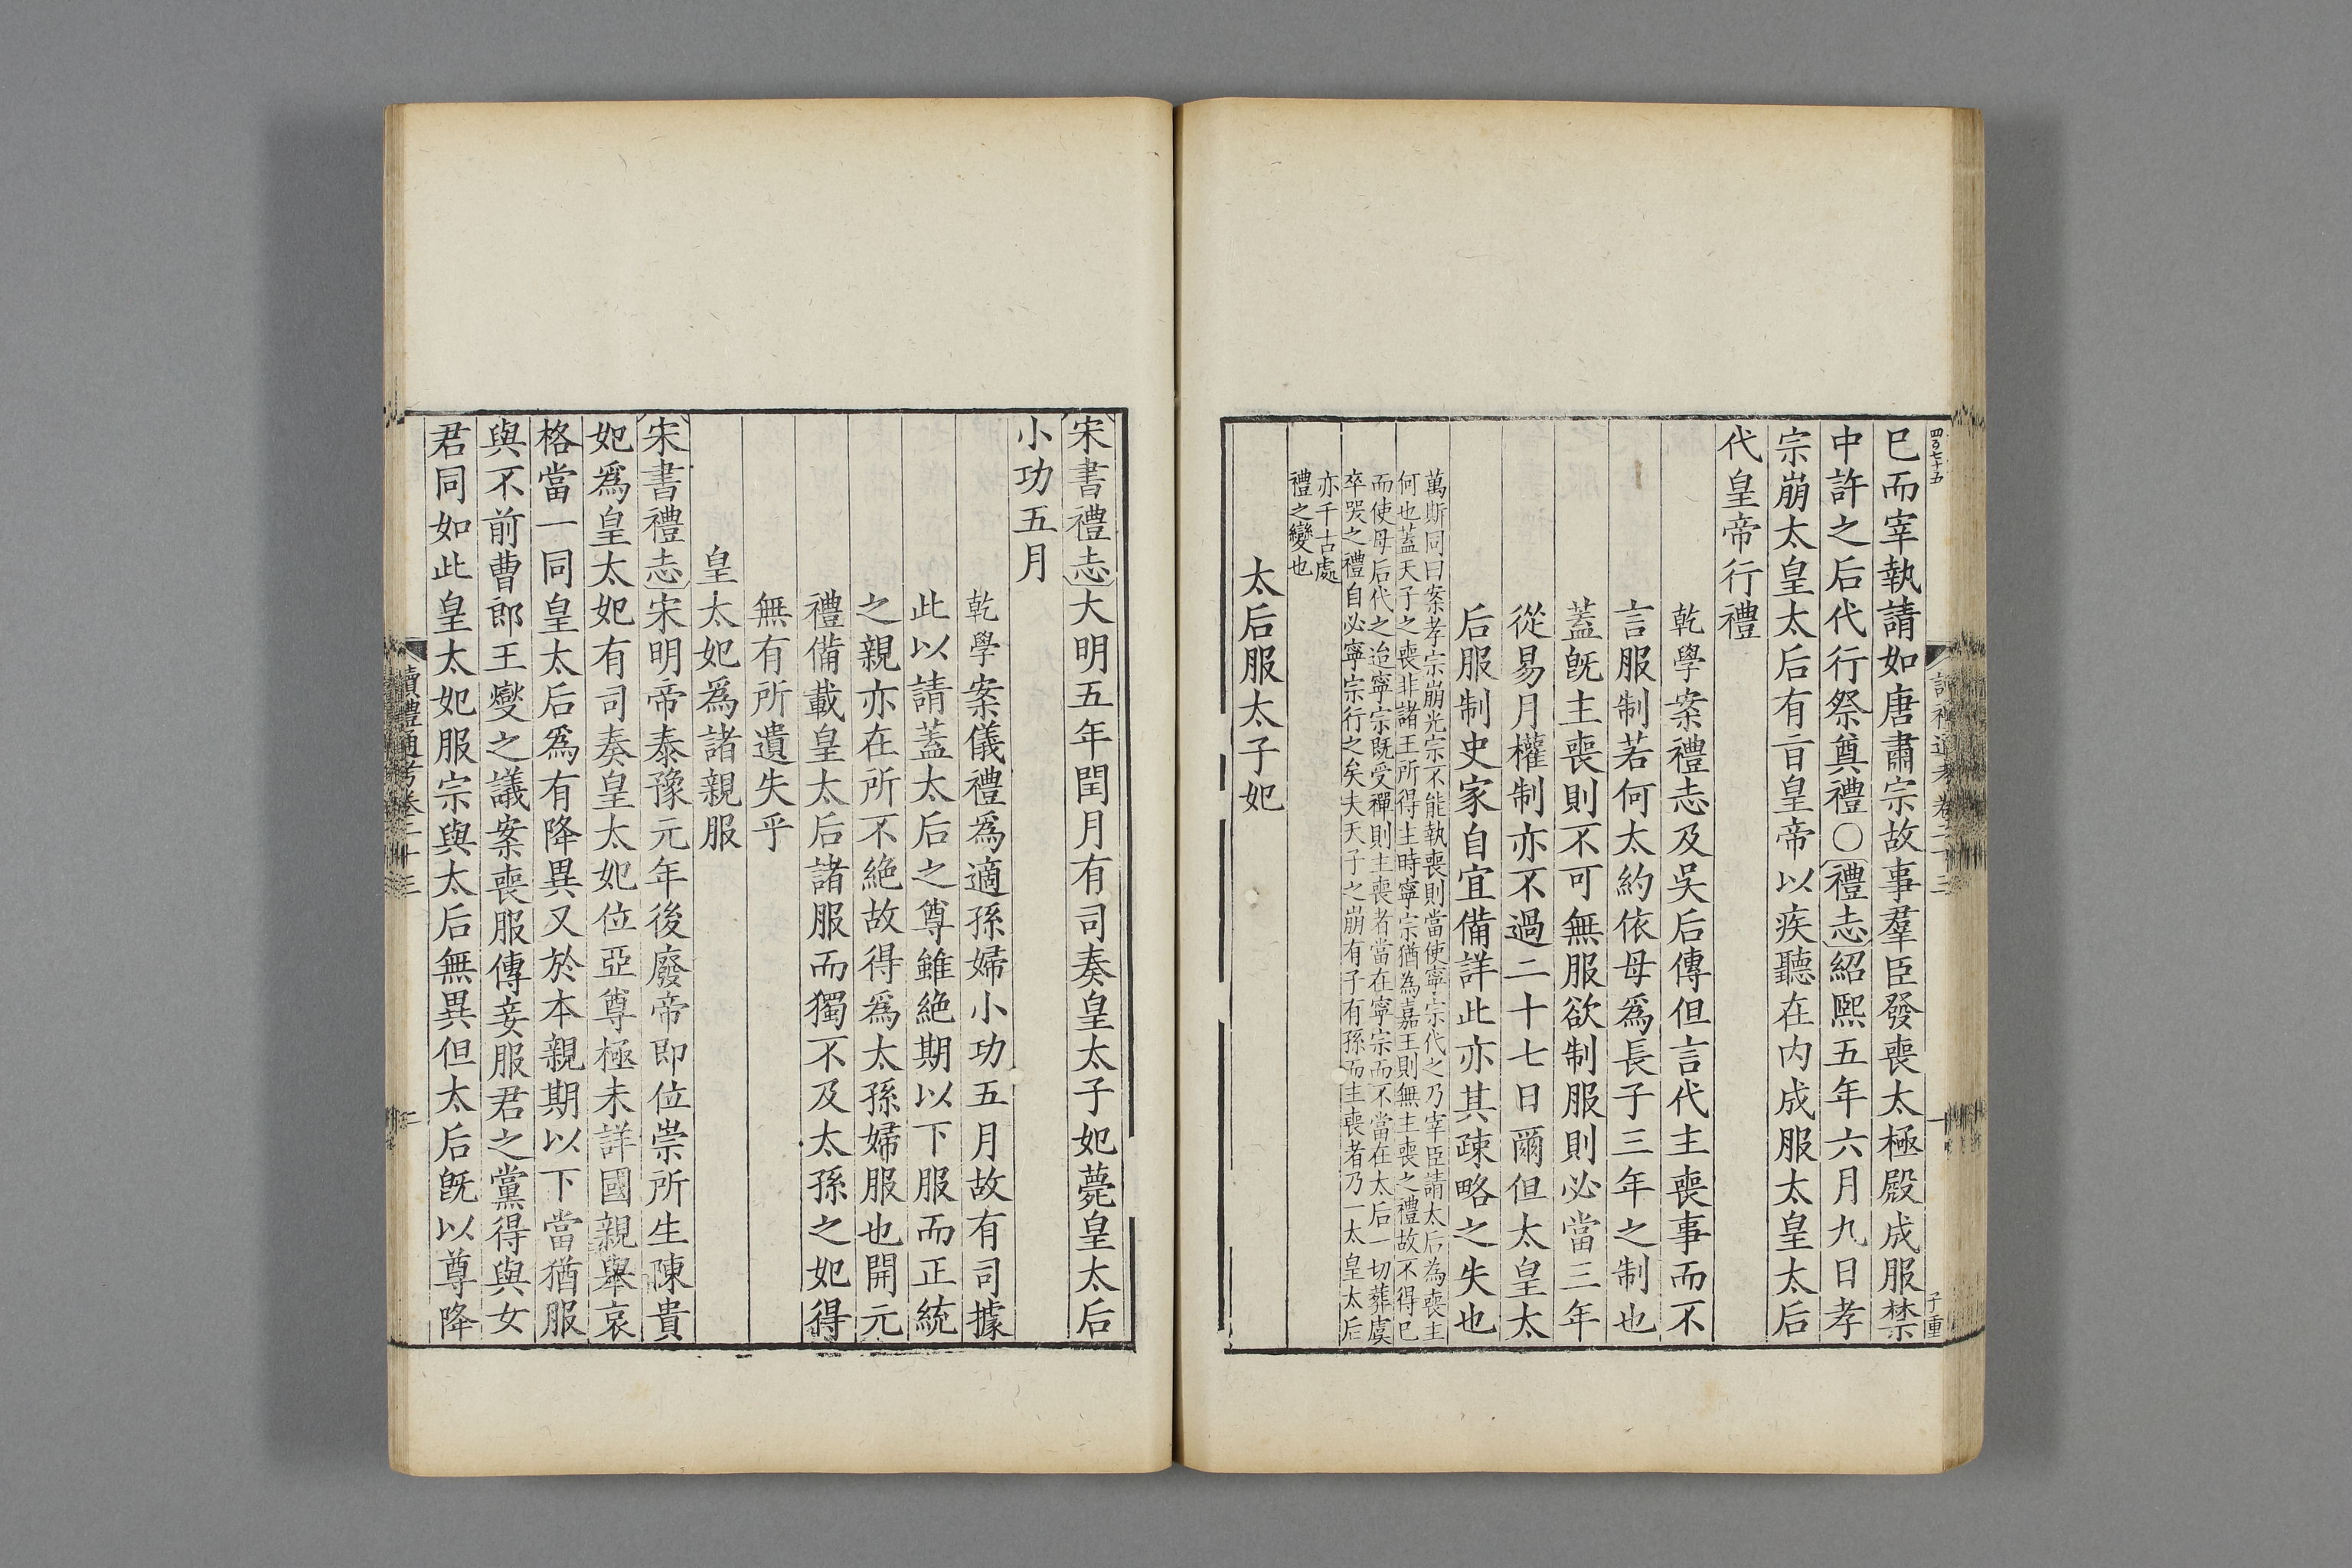 四百七十五
讀禮通考卷二十三
一
子重
已而宰執請如唐肅宗故事羣臣發喪太極殿成服禁
中許之后代行祭奠禮○禮志紹熙五年六月九日孝
宗崩太皇太后有㫖皇帝以疾聽在内成服太皇太后
代皇帝行禮
乾學案禮志及吳后傳但言代主喪事而不
言服制若何太約依母爲長子三年之制也
蓋既主喪則不可無服欲制服則必當三年
從易月權制亦不過二十七日爾但太皇太
后服制史家自宜備詳此亦其疎略之失也
萬斯同曰案孝宗崩光宗不能執喪則當使寧宗代之乃宰臣請太后為喪主
何也蓋天子之喪非諸王所得主時寧宗猶為嘉王則無主喪之禮故不得已
而使母后代之迨寧宗既受禪則主喪者當在寧宗而不當在太后一切葬虞
卒哭之禮自必寧宗行之矣夫天子之崩有子有孫而主喪者乃一太皇太后
亦千古處
禮之變也
太后服太子妃
宋書禮志大明五年閏月有司奏皇太子妃薨皇太后
小功五月
乾學案儀禮爲適孫婦小功五月故有司據
此以請蓋太后之尊雖絶期以下服而正統
之親亦在所不絶故得爲太孫婦服也開元
禮備載皇太后諸服而獨不及太孫之妃得
無有所遺失乎
皇太妃爲諸親服
宋書禮志宋明帝泰豫元年後廢帝即位崇所生陳貴
妃爲皇太妃有司奏皇太妃位亞尊極未詳國親舉哀
格當一同皇太后爲有降異又於本親期以下當猶服
與不前曹郎王燮之議案喪服傳妾服君之黨得與女
君同如此皇太妃服宗與太后無異但太后既以尊降
讀禮通考卷二十三
二